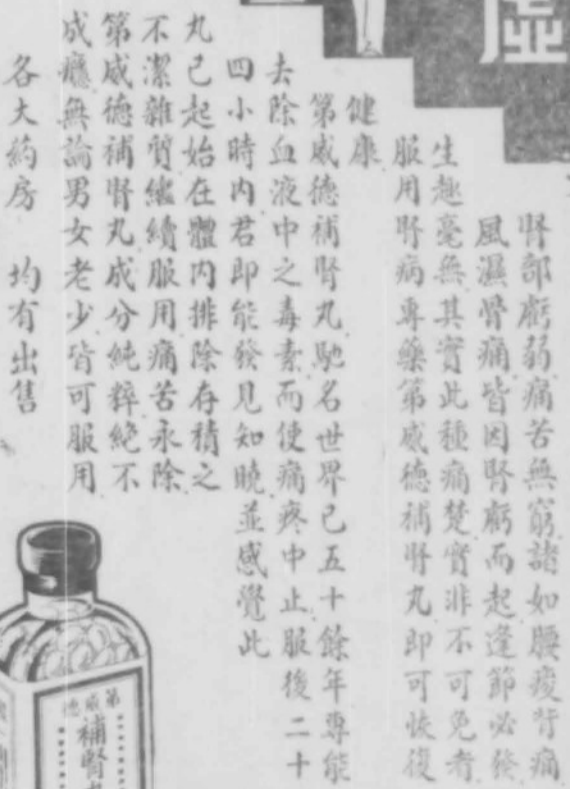 虛
腎部虧弱痛苦無窮諸如腰痠背痛
風濕骨痛皆因腎虧而起逢節必發
生趣毫無其實此種痛楚實非不可免者
服用腎病專藥第威德補腎丸即可恢復
健康
第威德補腎丸馳名世界已五十餘年專能
去除血液中之毒素而使痛疼中止服後二十
四小時內君即能發見知曉並感覺此
丸已起始在體內排除存積之
不潔雜質繼續服用痛苦永除
第威德補腎丸成分純粹絕不
成癮無論男女老少皆可服用
各大葯房 均有出售
第威德
補腎丸